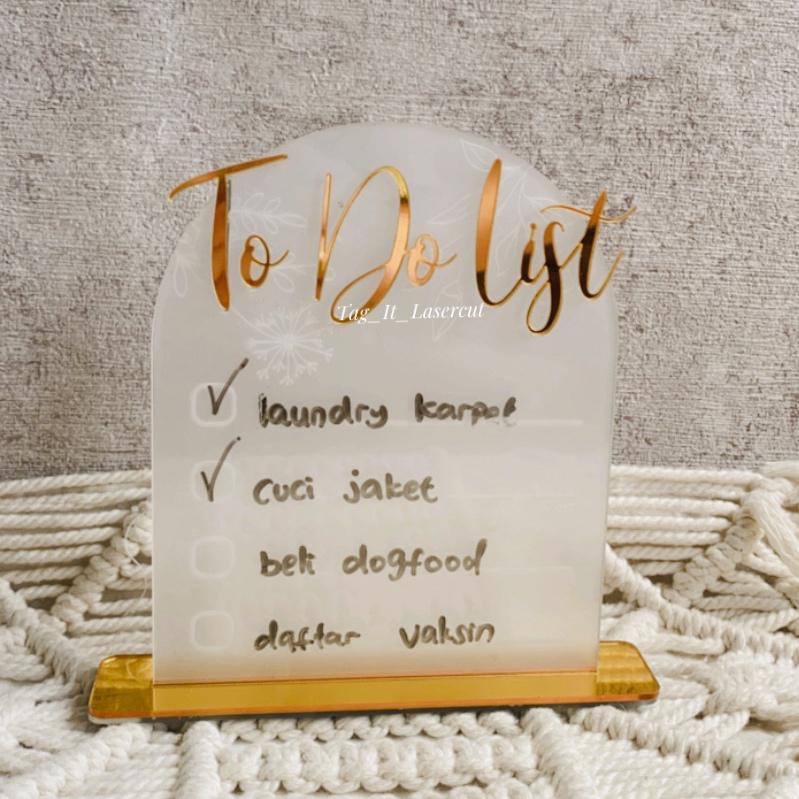 To Do List
Tag_It_Lasercut
laundry karpet
cuci jaket
beli dogfood
daftar vaksin